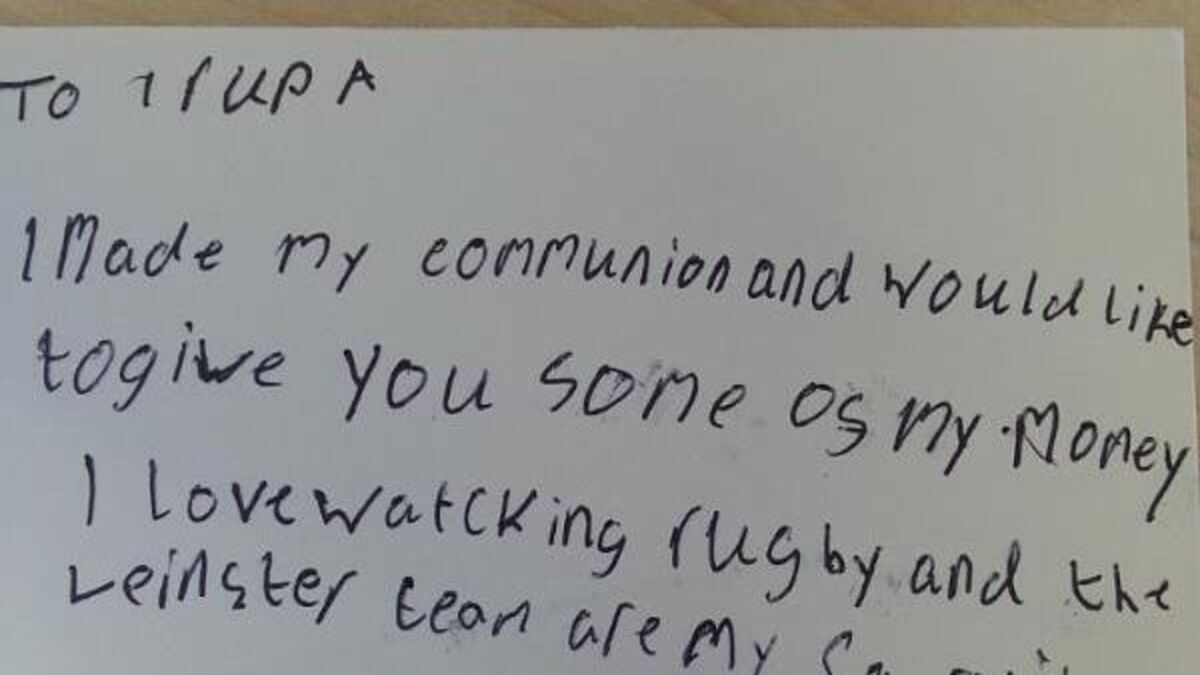 To IrUPA
I Made my communion and would like
to give you some os my. Money
I love watcking rugby and the
Leinster team are my